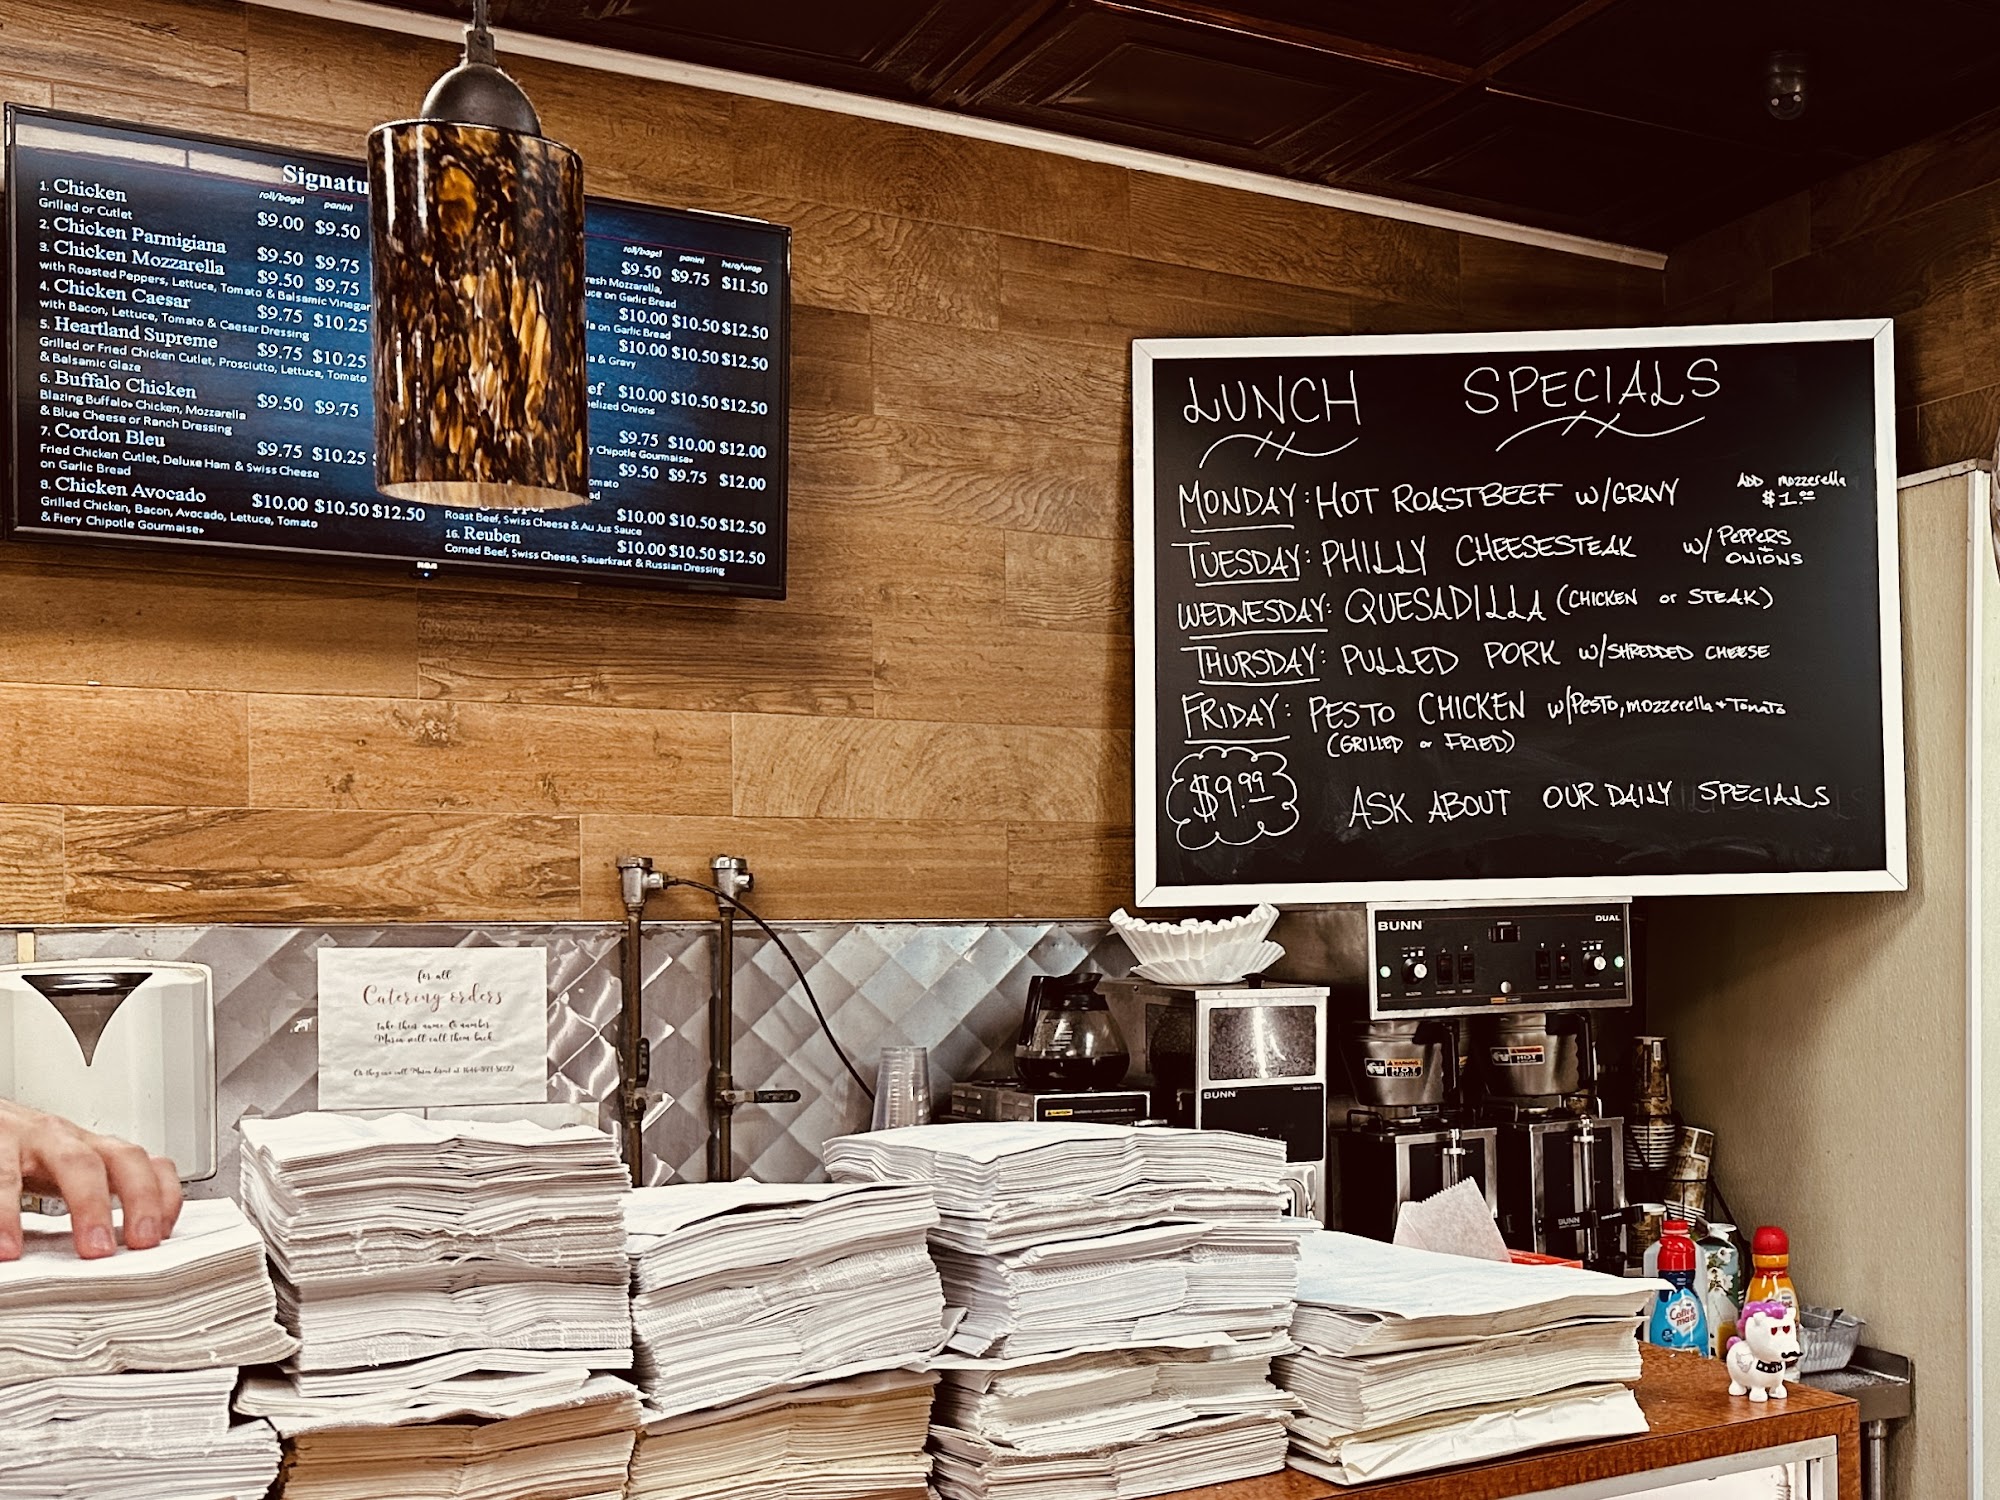 Signatu
roll/bagel panini
1. Chicken $9.00 $9.50
Grilled or Cutlet
2. Chicken Parmigiana $9.50 $9.75
3. Chicken Mozzarella $9.50 $9.75
with Roasted Peppers, Lettuce, Tomato & Balsamic Vinegar
4. Chicken Caesar $9.75 $10.25
with Bacon, Lettuce, Tomato & Caesar Dressing
5. Heartland Supreme $9.75 $10.25
Grilled or Fried Chicken Cutlet, Prosciutto, Lettuce, Tomato
& Balsamic Glaze
6. Buffalo Chicken $9.50 $9.75
Blazing Buffalo® Chicken, Mozzarella
& Blue Cheese or Ranch Dressing
7. Cordon Bleu $9.75 $10.25
Fried Chicken Cutlet, Deluxe Ham & Swiss Cheese
on Garlic Bread
8. Chicken Avocado $10.00 $10.50 $12.50
Grilled Chicken, Bacon, Avocado, Lettuce, Tomato
& Fiery Chipotle Gourmaise®
roll/bagel panini hero/wrap
$9.50 $9.75 $11.50
resh Mozzarella,
uce on Garlic Bread
$10.00 $10.50 $12.50
la on Garlic Bread
$10.00 $10.50 $12.50
la & Gravy
ef $10.00 $10.50 $12.50
elized Onions
$9.75 $10.00 $12.00
y Chipotle Gourmaise®
$9.50 $9.75 $12.00
omato
ad
pper $10.00 $10.50 $12.50
Roast Beef, Swiss Cheese & Au Jus Sauce
16. Reuben $10.00 $10.50 $12.50
Corned Beef, Swiss Cheese, Sauerkraut & Russian Dressing
RCA
LUNCH SPECIALS
MONDAY: HOT ROASTBEEF W/GRAVY ADD mozzerella $1.00
TUESDAY: PHILLY CHEESESTEAK W/ PEPPERS + ONIONS
WEDNESDAY: QUESADILLA (CHICKEN or STEAK)
THURSDAY: PULLED PORK W/SHREDDED CHEESE
FRIDAY: PESTO CHICKEN W/PESTO, mozzerella + Tomato
(GRILLED or FRIED)
$9.99 ASK ABOUT OUR DAILY SPECIALS
for all
Catering orders
take their name & number
Maria will call them back.
Or they can call Maria direct at
BUNN DUAL
BUNN
WARNING HOT
WARNING HOT
CAUTION
BUNN
Coffee mate